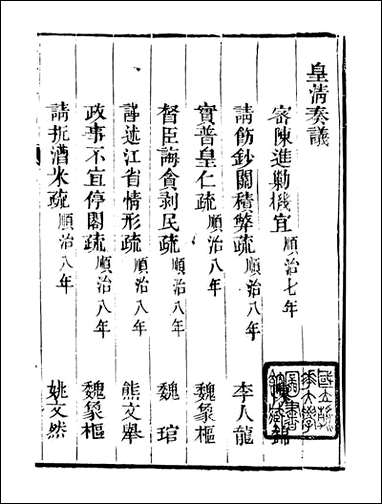 皇清奏議
密陳進勦機宜 順治七年
國立清
華大學
圖書
請飭鈔關積弊疏 順治八年 李人龍
實普皇仁疏 順治八年 魏象樞
督臣誨貪剥民疏 順治八年 魏琯
謹述江省情形疏 順治八年 熊文舉
政事不宜停閣疏 順治八年 魏象樞
請折漕米疏 順治八年 姚文然